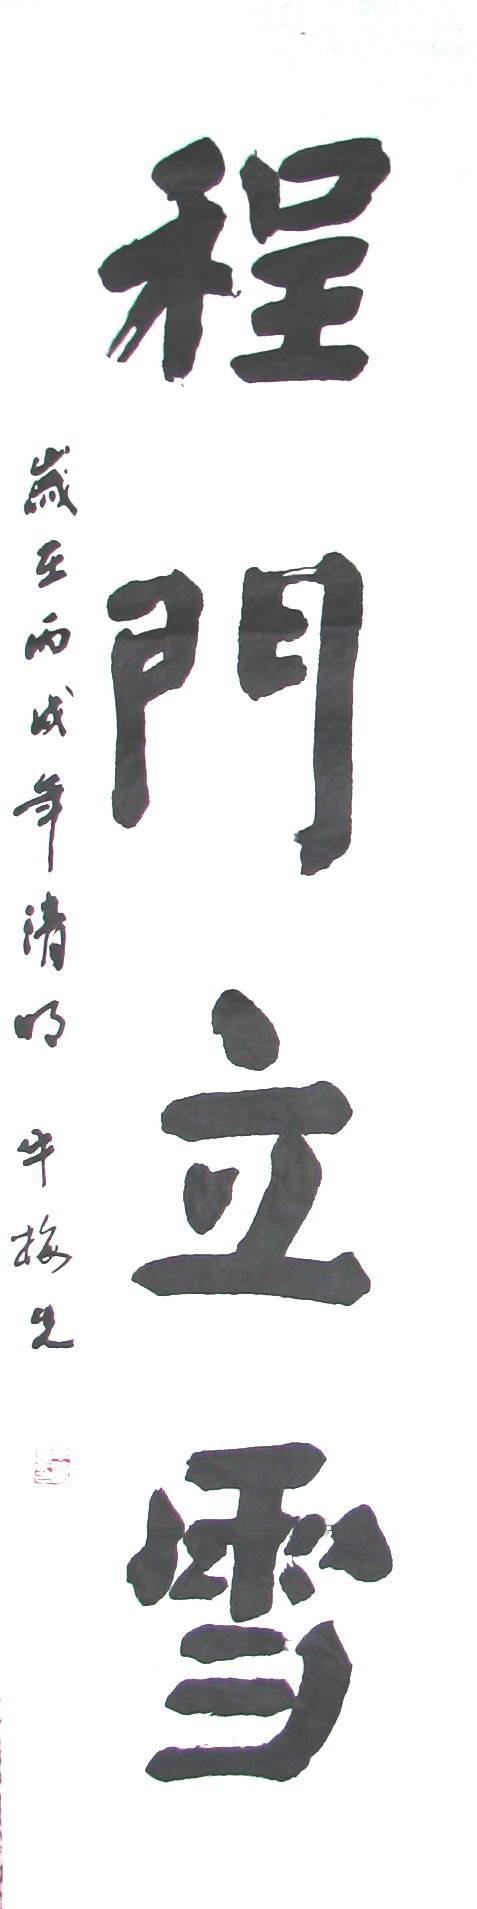 程門立雪
歲在丙戌年清明 牛梅先